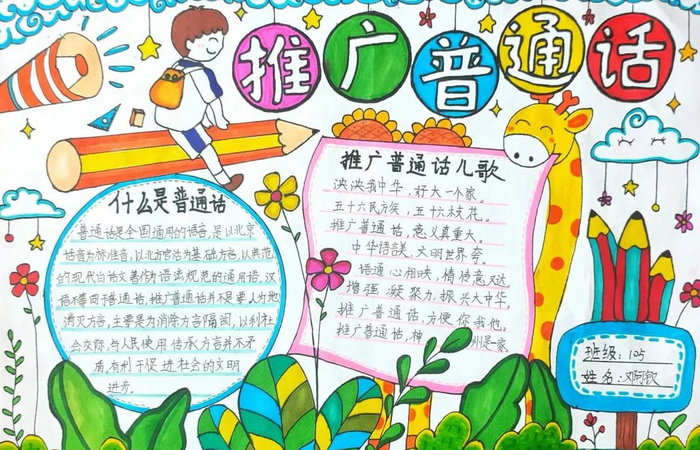 推广普通话
什么是普通话
普通话是全国通用的语言,是以北京
语音为标准音,以北方官话为基础方言,以典范
的现代白话文著作为语法规范的通用语,汉
语不等同于普通话,推广普通话并不是要人为地
消灭方言,主要是为消除方言隔阂,以利社
会交际,与人民使用传承方言并不矛
盾,有利于促进社会的文明
进步。
推广普通话儿歌
泱泱我中华,好大一个家。
五十六民族,五十六枝花。
推广普通话,意义真重大。
中华语言美,文明世界夸。
语通心相映,情传意又达
增强凝聚力,振兴大中华。
推广普通话,方便你我他。
推广普通话,神 州是一家
班级:105
姓名:邓